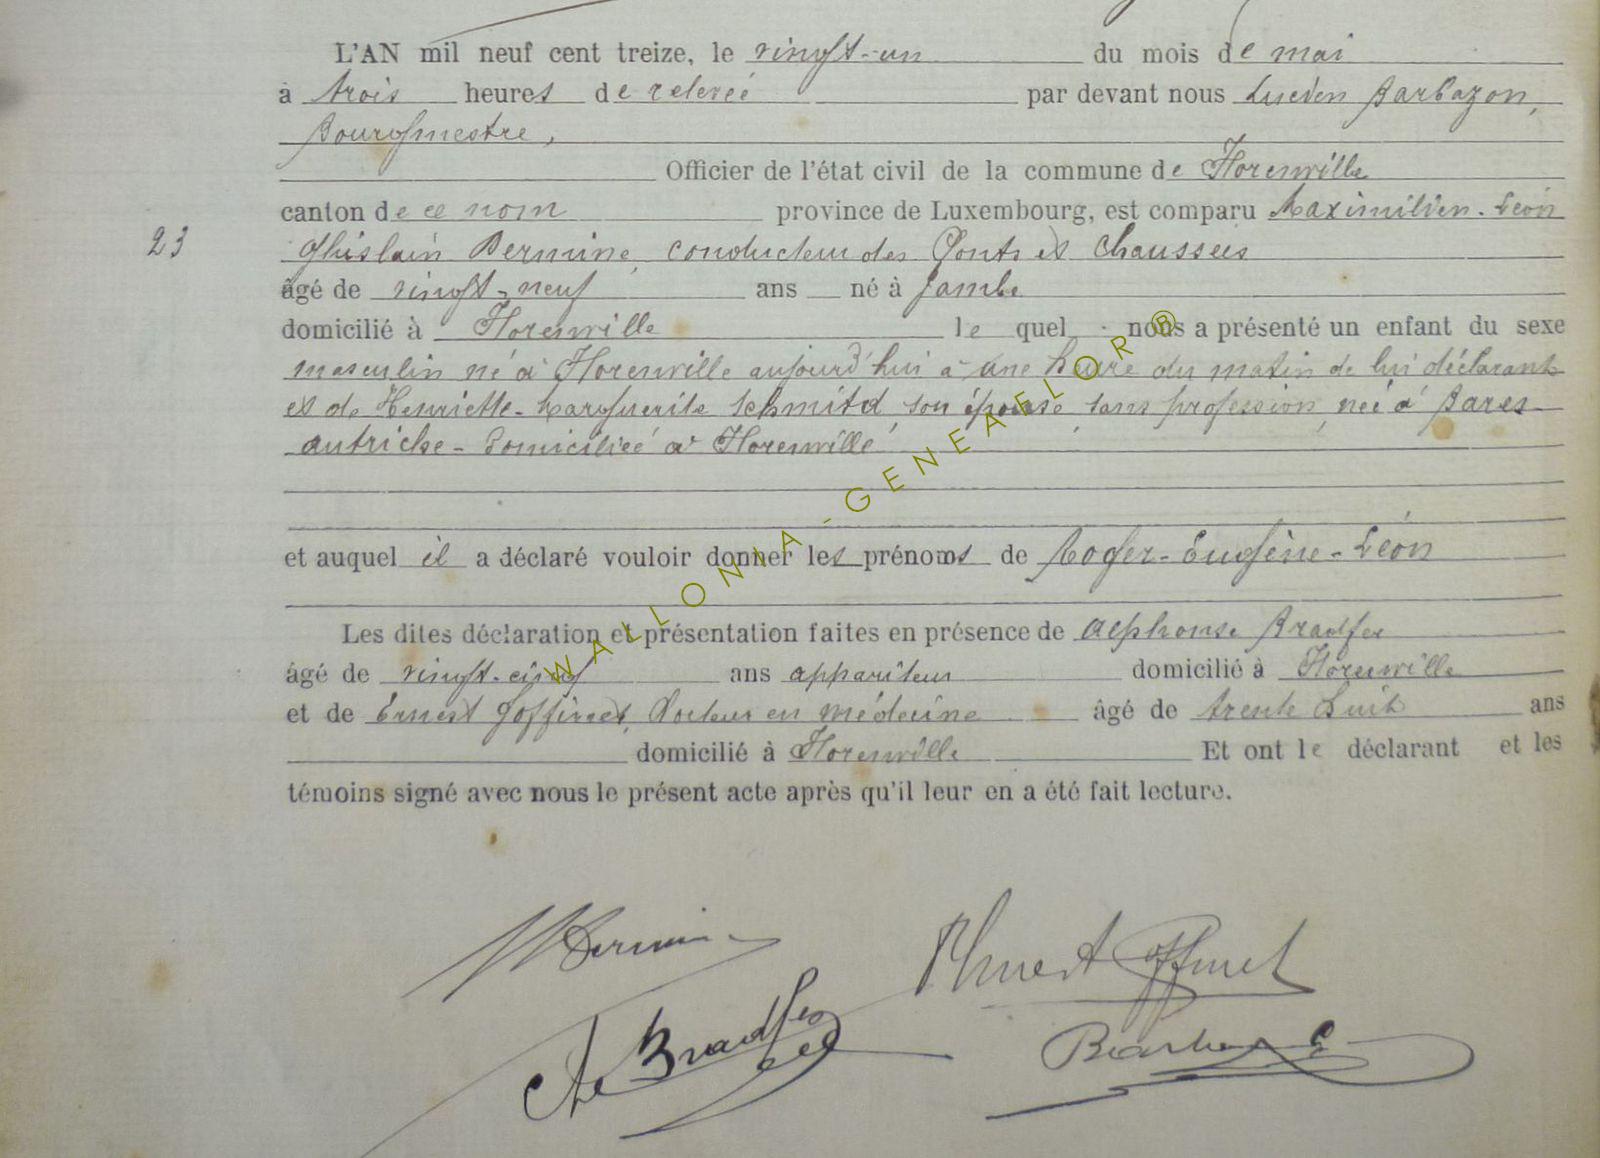 L'AN mil neuf cent treize, le vingt-un du mois de mai
à trois heures de relevée par devant nous Lucien Barbazon,
Bourgmestre,
Officier de l'état civil de la commune de Florenville
canton de ce nom province de Luxembourg, est comparu Maximilien-Léon
23
Ghislain Dermine, conducteur des Ponts et Chaussées
âgé de vingt-neuf ans né à Jambe
domicilié à Florenville le quel nous a présenté un enfant du sexe
masculin né à Florenville aujourd'hui à une heure du matin de lui déclarant
et de Henriette-Marguerite Schmitd, son épouse, sans profession, née à
autriche - domiciliée à Florenville
et auquel il a déclaré vouloir donner les prénoms de Roger-Eugène-Léon
Les dites déclaration et présentation faites en présence de Alphonse Bradfer
âgé de vingt-cinq ans appariteur domicilié à Florenville
et de Ernest Goffinet, Docteur en médecine âgé de trente huit ans
domicilié à Florenville Et ont le déclarant et les
témoins signé avec nous le présent acte après qu'il leur en a été fait lecture.
WALLONIA-GENEAFLOR ®
MDermine
Ernest Goffinet
Bradfer